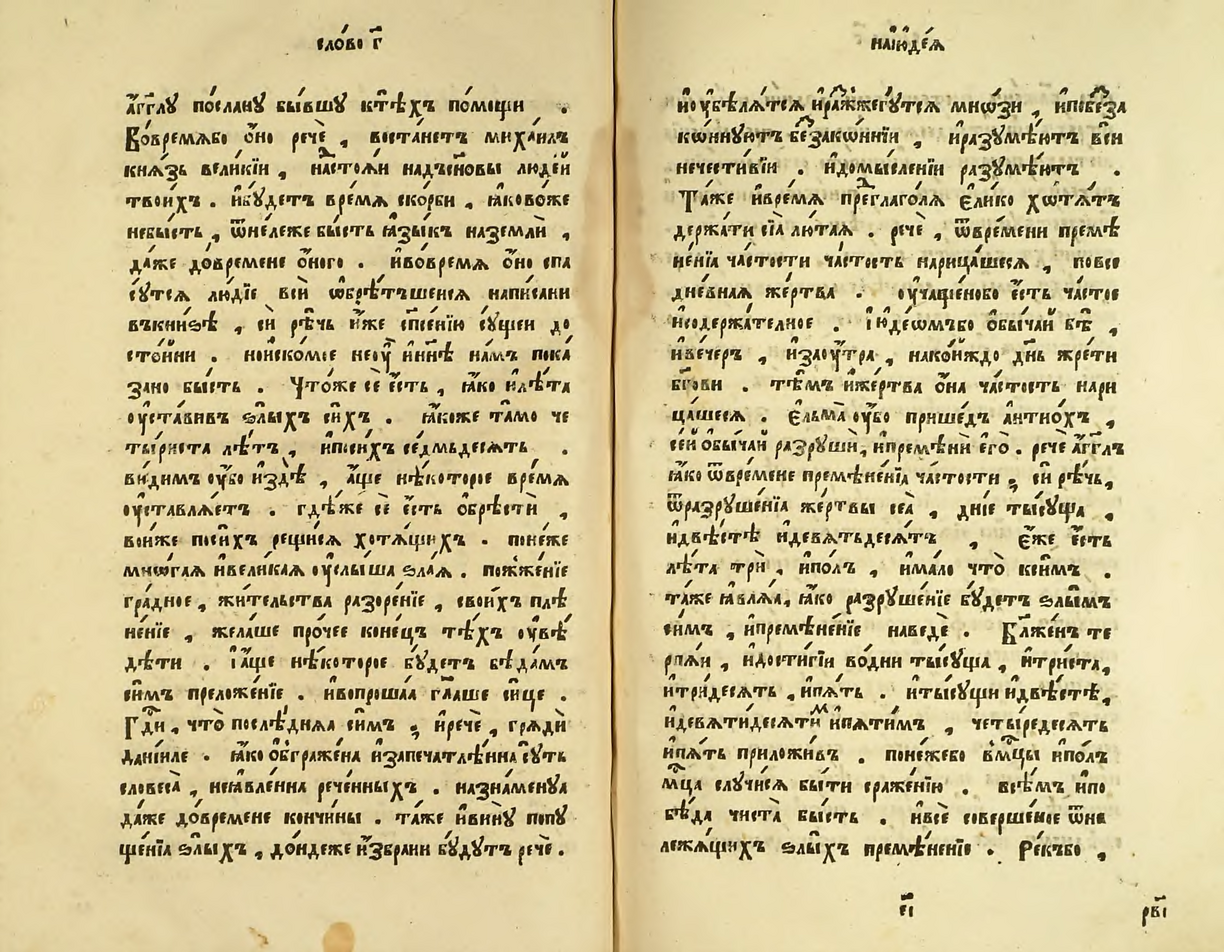 сло́во г҃
а҆́гг҃лꙋ посланꙋ бы́вшꙋ ктѣ́хъ по́мощи .
Во́времѧбо ѻ҆́но речѐ , воста́нетъ миха́илъ
кнѧ́зь вели́кїи , настоѧ́и надъсн҃овы люде́й
твои́хъ . и҆бꙋ́детъ вре́мѧ ско́рби , ꙗ҆ковоже
небы́сть , ѿне́леже бы́сть ꙗ҆зы́къ наземлѝ ,
да́же довре́мене ѻ҆́ного . и҆во́времѧ ѻ҆́но спа
сꙋ́тсѧ лю́дїе всѝ ѡ҆брѣ́тъшеисѧ напи́сани
въкни́зѣ , сѝ рѣ́чь и҆́же сп҃се́нїю сꙋ́щеи до
сто́йни . нои҆ско́мое неоу҆̀ и҆́ннѣ на́мъ пока́
зано бы́сть . Что́же сѐ є҆́сть , ꙗ҆́ко и҆лѣ́та
оу҆ста́вивъ ѕлы́хъ си́хъ . ꙗ҆́коже та́мо че
ты́риста лѣ́тъ , и҆поси́хъ се́дмьдесѧтъ .
ви́димъ оу҆́бо и҆здѣ̀ , а҆́ще нѣ́которое вре́мѧ
оу҆ставлѧ́етъ . гдѣ́же сѐ є҆́сть ѻ҆брѣ́сти ,
вои҆́же поси́хъ рещи́сѧ хотѧ́щихъ . поне́же
мнѡ́гаѧ и҆вели́каѧ оу҆слы́ша ѕла́ѧ . пожже́нїе
гра́дное , жи́тельства разоре́нїе , свои́хъ плѣ
не́нїе , жела́ше про́чее коне́цъ тѣ́хъ оу҆вѣ́
дѣти . І҆а҆́ще нѣ́которое бꙋ́детъ бѣда́мъ
си́мъ преложе́нїе . и҆вопроша́ѧ гл҃аше си́це .
Гд҃и , что̀ послѣ́днѧѧ си́мъ ; и҆речѐ , грѧдѝ
данїи́ле . ꙗ҆́ко ѻ҆бграже́на и҆запечатлѣ́нна сꙋ́ть
словеса̀ , неꙗ҆вле́нна рече́нныхъ . назна́менꙋѧ
да́же довре́мене кончи́ны . та́же и҆винꙋ̀ попꙋ
ще́нїѧ ѕлы́хъ , до́ндеже и҆збра́ни бꙋ́дꙋтъ речѐ .
наїю҆де́ѧ
и҆оу҆бѣлѧ́тсѧ и҆ражжегꙋ́тсѧ мно́ѕи , и҆побеза
ко́ннꙋютъ беззако́ннїи , и҆разꙋмѣ́ютъ всѝ
нечести́вїи . и҆домы́сленїи разꙋмѣ́ютъ .
Та́же и҆вре́мѧ преглаго́лѧ є҆ли́ко хотѧ́тъ
держа́ти сїѧ̀ лю́таѧ . речѐ , ѿвре́мени премѣ
не́нїѧ ча́стости ча́стость нарица́шесѧ , повсе
дне́внаѧ же́ртва . оу҆ча́щенобо є҆́сть ча́стое
и҆содержа́телное . І҆юде́ѡмъбо ѻ҆бы́чай бѣ̀ ,
и҆ве́черъ , и҆заоу҆́тра , нако́йждо дн҃ь жре́ти
бг҃ови . тѣ́мъ и҆же́ртва ѻ҆на̀ ча́стость нари
ца́шесѧ . Є҆льма̀ оу҆́бо прише́дъ антїо́хъ ,
се́й ѻ҆бы́чай разрꙋшѝ, и҆премѣнѝ є҆го̀ . речѐ а҆́гг҃лъ
ꙗ҆́ко ѿвре́мене премѣне́нїѧ ча́стости ; сѝ рѣ́чь,
ѿразрꙋше́нїѧ же́ртвы сеѧ̀ , дні́е ты́сѧща ,
и҆двѣ́стѣ и҆де́вѧтьдесѧтъ , є҆́же є҆́сть
лѣ́та трѝ , и҆по́лъ , и҆ма́ло что̀ кси́мъ .
та́же ꙗ҆влѧ́ѧ, ꙗ҆́ко разрꙋше́нїе бꙋ́детъ ѕлы́мъ
си́мъ , и҆премѣне́нїе наведѐ . Бл҃же́нъ те
рпѧ́и , и҆дости́гїи во́дни ты́сѧща , и҆три́ста,
и҆три́десѧть , и҆пѧ́ть . и҆ты́сѧщи и҆двѣ́стѣ,
и҆девѧти́десѧтим и҆пѧ́тимъ , четы́редесѧть
и҆пѧ́ть приложи́въ . поне́жебо вмц҃ы и҆по́лъ
мц҃а слꙋчи́сѧ бы́ти сраже́нїю . всѣ́мъ и҆по
бѣ́да чиста̀ бы́сть . и҆всѐ соверше́ное ѿне
лежѧ́щихъ ѕлы́хъ премѣне́нїе . Ре́къбо ,
є҃і
рв҃і